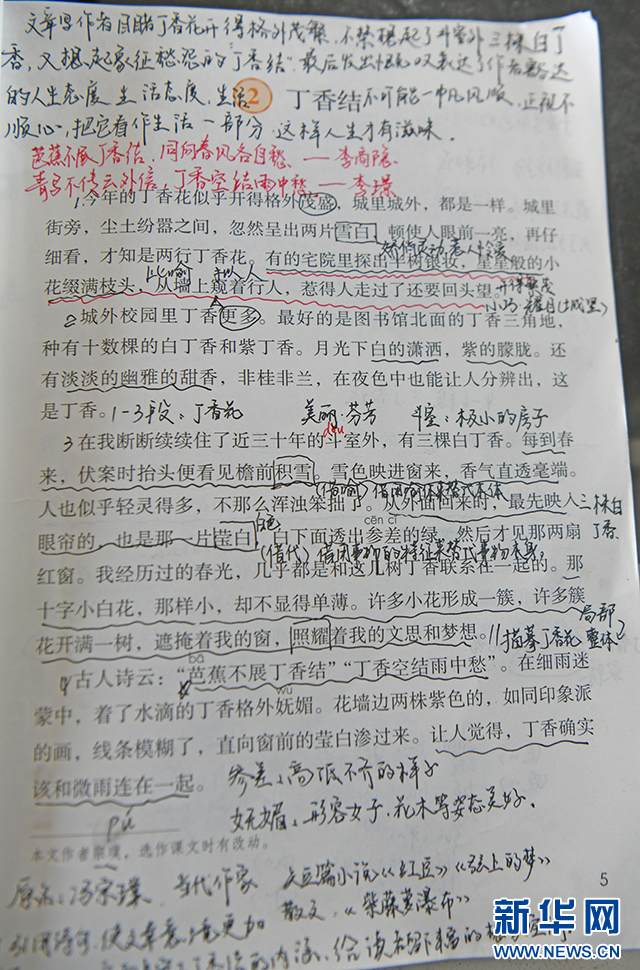 文章写作者目睹丁香花开得格外茂盛,不禁想起了斗室外三棵白丁
香,又想起象征愁怨的"丁香结"最后发出慨叹表达了作者豁达
的人生态度 生活态度,生活
2 丁香结 不可能一帆风顺,正视不
顺心,把它看作生活一部分 这样人生才有滋味。
芭蕉不展丁香结,同向春风各自愁 — 李商隐
青鸟不传云外信,丁香空结雨中愁 — 李璟
1今年的丁香花似乎开得格外茂盛,城里城外,都是一样。城里
街旁,尘土纷嚣之间,忽然呈出两片雪白,顿使人眼前一亮,再仔
细看,才知是两行丁香花。有的宅院里探出半树银妆,星星般的小
比喻 拟人
花缀满枝头,从墙上窥着行人,惹得人走过了还要回头望。
2城外校园里丁香更多。最好的是图书馆北面的丁香三角地,
种有十数棵的白丁香和紫丁香。月光下白的潇洒,紫的朦胧。还
有淡淡的幽雅的甜香,非桂非兰,在夜色中也能让人分辨出,这
是丁香。1-3段:丁香花 美丽·芬芳 斗室:极小的房子
dǒu
3在我断断续续住了近三十年的斗室外,有三棵白丁香。每到春
来,伏案时抬头便看见檐前积雪。雪色映进窗来,香气直透毫端。
(借喻)借用喻体来替代本体
人也似乎轻灵得多,不那么浑浊笨拙了。从外面回来时,最先映入
三株白丁香
白色 cēn cī
眼帘的,也是那一片莹白,白下面透出参差的绿,然后才见那两扇
(借代)
红窗。我经历过的春光,几乎都是和这几树丁香联系在一起的。那
十字小白花,那样小,却不显得单薄。许多小花形成一簇,许多簇
局部
花开满一树,遮掩着我的窗,照耀着我的文思和梦想。//描摹丁香花 整体
bā
4古人诗云:“芭蕉不展丁香结”“丁香空结雨中愁”。在细雨迷
wǔ
蒙中,着了水滴的丁香格外妩媚。花墙边两株紫色的,如同印象派
的画,线条模糊了,直向窗前的莹白渗过来。让人觉得,丁香确实
该和微雨连在一起。 参差:高低不齐的样子
妩媚:形容女子、花木等姿态美好。
pú
本文作者宗璞,选作课文时有改动。
原名:冯宗璞 当代作家 短篇小说《红豆》《弦上的梦》
散文:《紫藤萝瀑布》
5
新华网
WWW.NEWS.CN